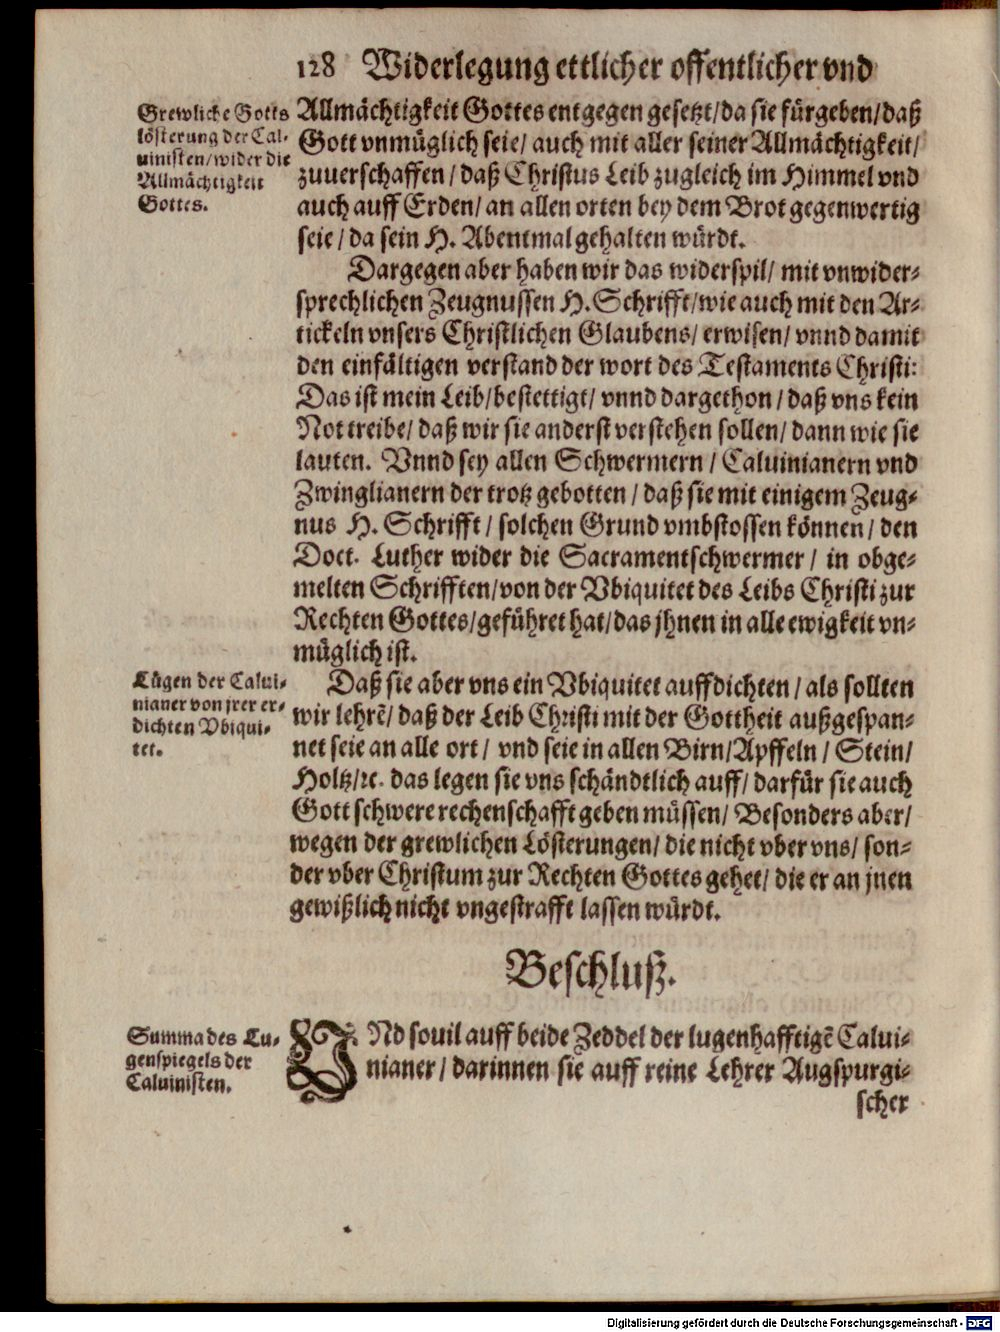 128 Widerlegung ettlicher offentlicher vnd
Grewliche Gotts
lösterung der Cal-
uinisten/wider die
Allmächtigkeit
Gottes.
Allmächtigkeit Gottes entgegen gesetzt/da sie fürgeben/daß
Gott vnmüglich seie/ auch mit aller seiner Allmächtigkeit/
zuuerschaffen/ daß Christus Leib zugleich im Himmel vnd
auch auff Erden/ an allen orten bey dem Brot gegenwertig
seie/ da sein H. Abentmal gehalten würdt.
Dargegen aber haben wir das widerspil/ mit vnwider-
sprechlichen Zeugnussen H. Schrifft/wie auch mit den Ar-
tickeln vnsers Christlichen Glaubens/ erwisen/ vnnd damit
den einfältigen verstand der wort des Testaments Christi:
Das ist mein Leib/bestettigt/ vnnd dargethon/ daß vns kein
Not treibe/ daß wir sie anderst verstehen sollen/ dann wie sie
lauten. Vnnd sey allen Schwermern/ Caluinianern vnd
Zwinglianern der trotz gebotten/ daß sie mit einigem Zeug-
nus H. Schrifft/ solchen Grund vmbstossen können/ den
Doct. Luther wider die Sacramentschwermer/ in obge-
melten Schrifften/von der Vbiquitet des Leibs Christi zur
Rechten Gottes/geführet hat/das jhnen in alle ewigkeit vn-
müglich ist.
Lügen der Calui-
nianer von jrer er-
dichten Vbiqui-
tet.
Daß sie aber vns ein Vbiquitet auffdichten/ als sollten
wir lehrẽ/ daß der Leib Christi mit der Gottheit außgespan-
net seie an alle ort/ vnd seie in allen Birn/Apffeln/ Stein/
Holtz/ꝛc. das legen sie vns schändtlich auff/ darfür sie auch
Gott schwere rechenschafft geben müssen/ Besonders aber/
wegen der grewlichen Lösterungen/ die nicht vber vns/ son-
der vber Christum zur Rechten Gottes gehet/ die er an jnen
gewißlich nicht vngestrafft lassen würdt.
Beschluß.
Summa des Lu-
genspiegels der
Caluinisten.
VNd souil auff beide Zeddel der lugenhafftigẽ Calui-
nianer/ darinnen sie auff reine Lehrer Augspurgi-
scher
Digitalisierung gefördert durch die Deutsche Forschungsgemeinschaft - DFG